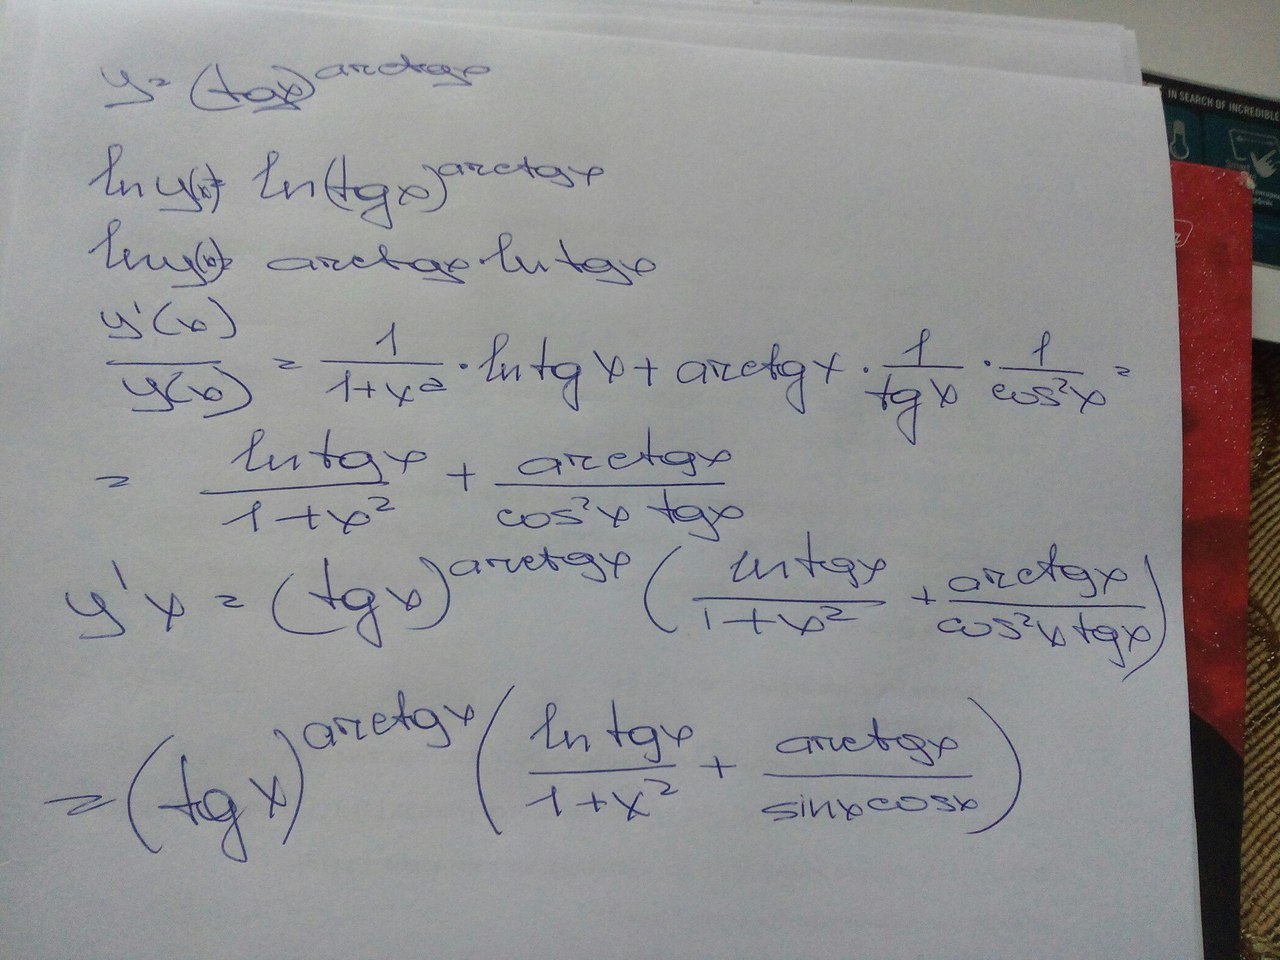 y = (tgx)^arctgx
ln y(x) = ln(tgx)^arctgx
ln y(x) = arctgx · ln tgx
y'(x)/y(x) = 1/(1+x²) · ln tg x + arctgx · 1/tgx · 1/cos²x =
= ln tgx/(1+x²) + arctgx/(cos²x tgx)
y'x = (tgx)^arctgx (ln tgx/(1+x²) + arctgx/(cos²x tgx))
= (tg x)^arctgx (ln tgx/(1+x²) + arctgx/(sinx cosx))
IN SEARCH OF INCREDIBLE